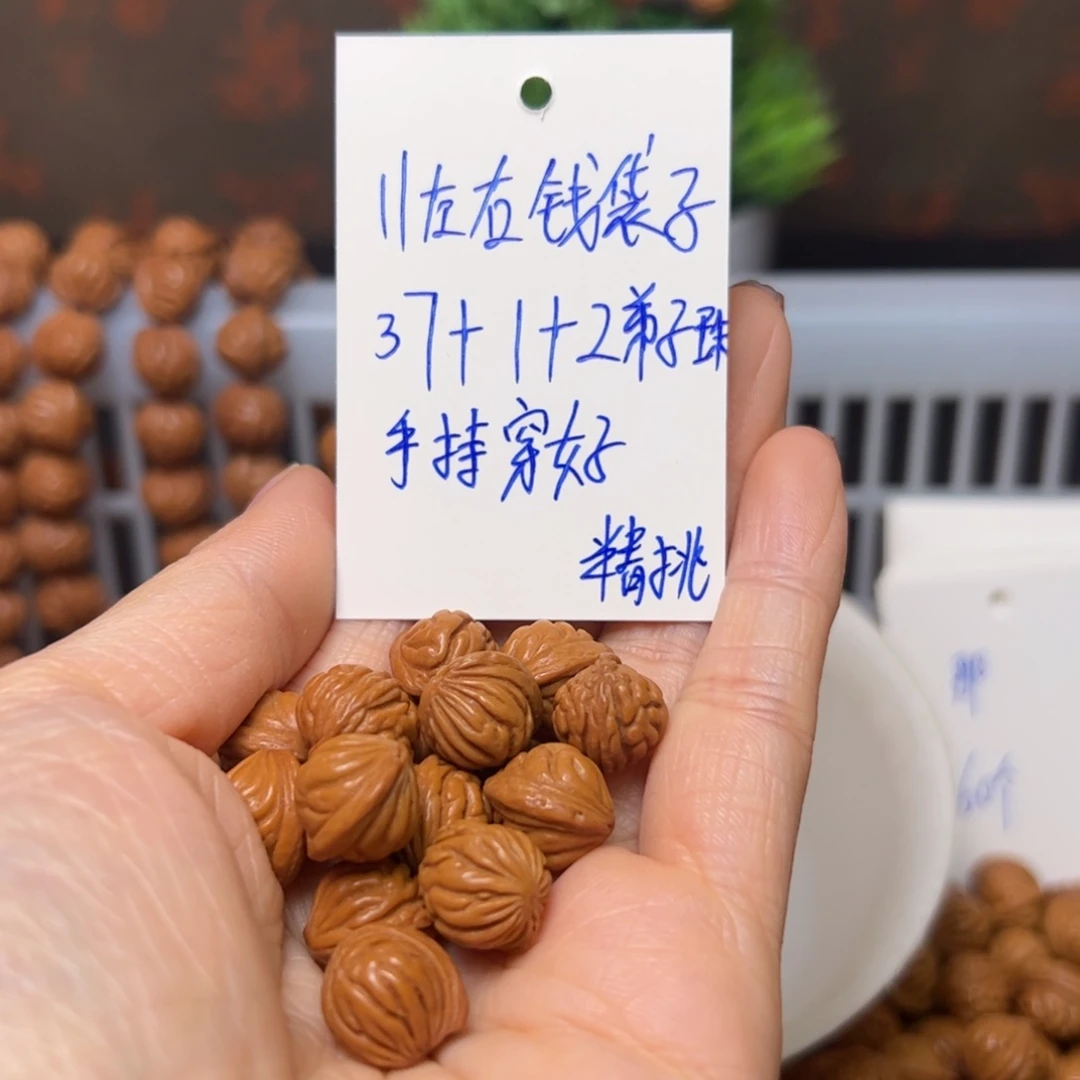 11左右钱袋子
37+1+2弟子珠
手持穿好
精挑
60个